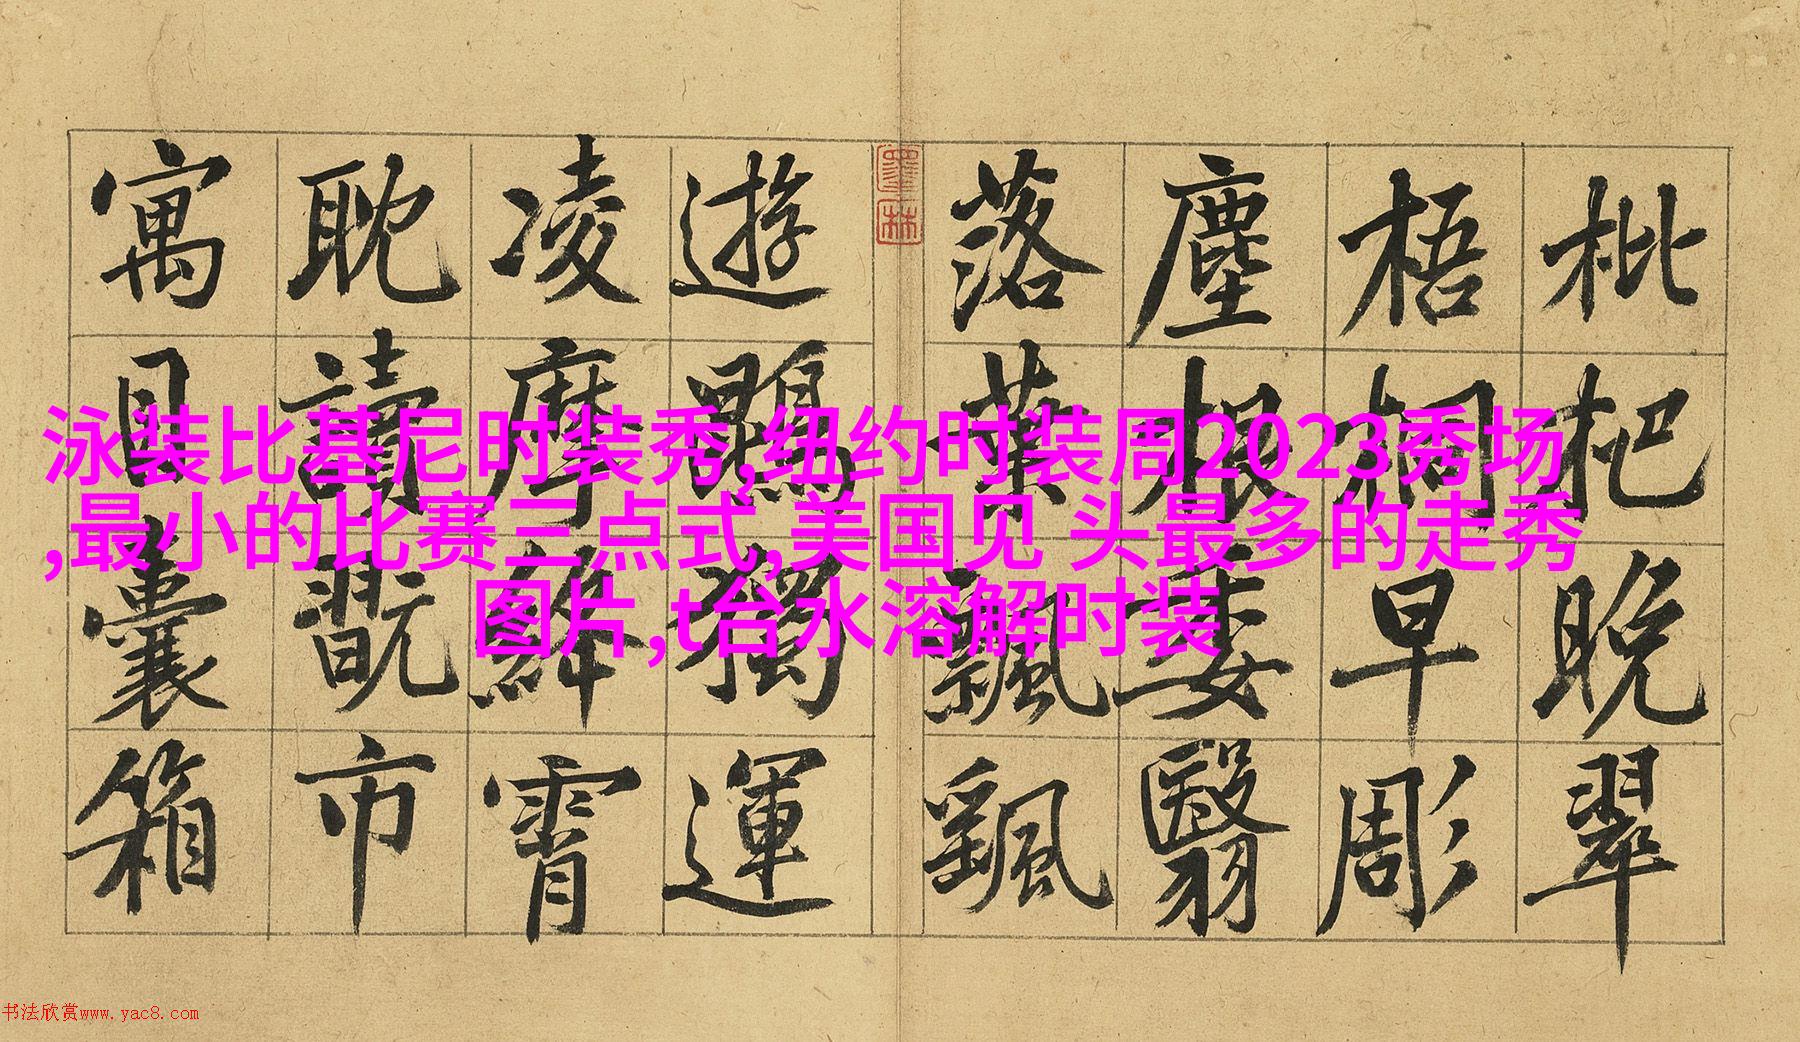 泳装比基尼时装秀,纽约时装周2023秀场
,最小的比赛三点式,美国见 头最多的走秀
图片,t台水溶解时装
枇杷晚翠
梧桐早彫
塵根委翳
落葉飄颻
墨林
遊鵾獨運
凌摩絳霄
耽讀翫市
寓目囊箱
书法欣赏www.yac8.com